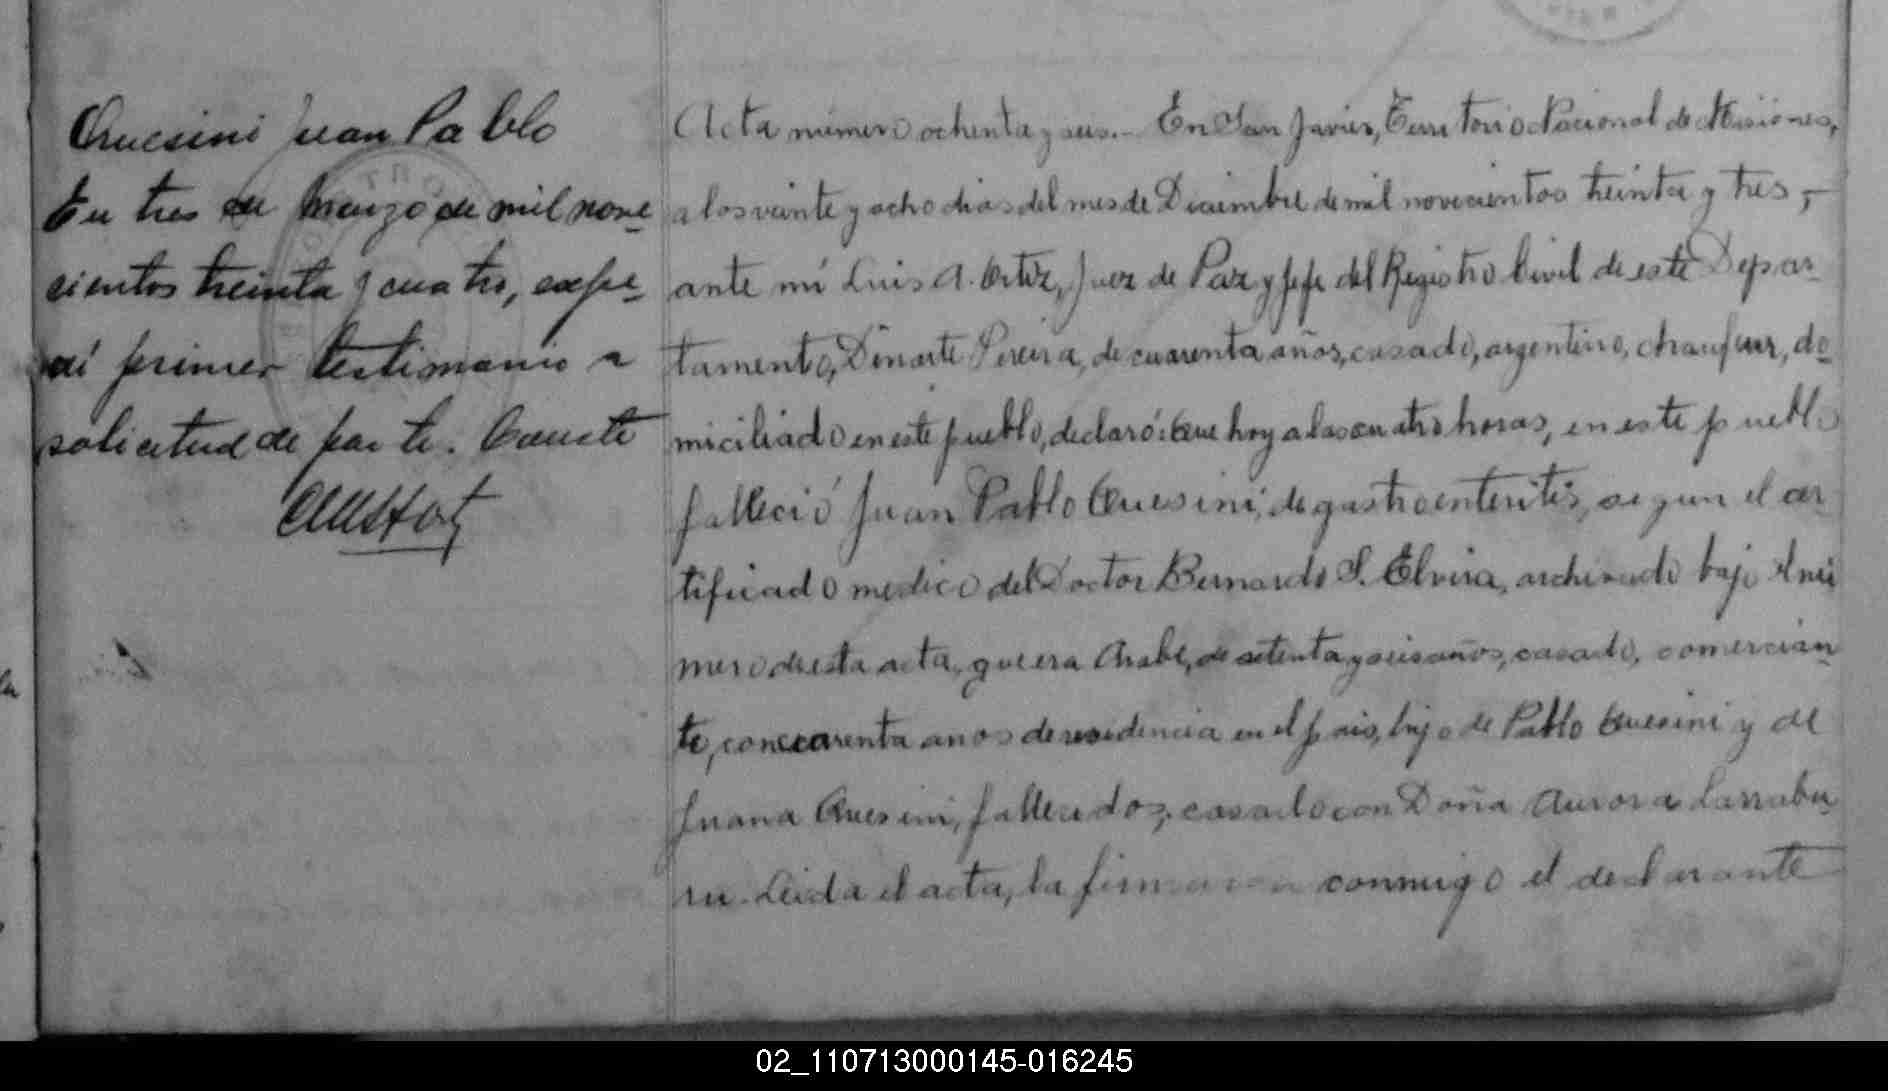 Quesini Juan Pablo
En tres de Marzo de mil nove
cientos treinta y cuatro, expe-
dí primer testimonio a
solicitud de parte. Conste
Acta número ochenta y seis.- En San Javier, Territorio Nacional de Misiones,
a los veinte y ocho dias del mes de Diciembre de mil novecientos treinta y tres,-
ante mi Luis A. Ortiz, Juez de Paz y Jefe del Registro Civil de este Depar-
tamento, Dinarte Pereira, de cuarenta años, casado, argentino, chaufeur, do-
miciliado en este pueblo, declaró: Que hoy a las cuatro horas, en este pueblo
falleció Juan Pablo Quesini, de gastroenteritis, segun el cer-
tificado medico del Doctor Bernardo S. Elvira, archivado bajo el nú-
mero de esta acta, que era Arabe, de setenta y seis años, casado, comercian-
te, con cuarenta anos de residencia en el pais, hijo de Pablo Quesini y de
Juana Quesini, fallecidos, casado con Doña Aurora Larrabu-
ru. Leida el acta, la firmaron conmigo el declarante
02_110713000145-016245